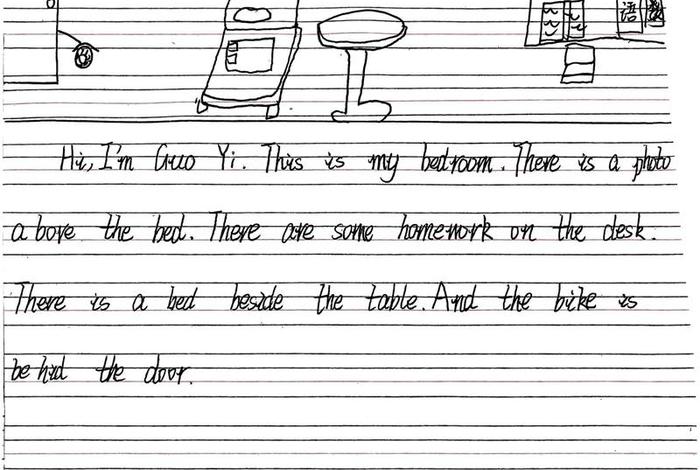 语
Hi, I'm Guo Yi. This is my bedroom. There is a photo
above the bed. There are some homework on the desk.
There is a bed beside the table. And the bike is
behid the door.